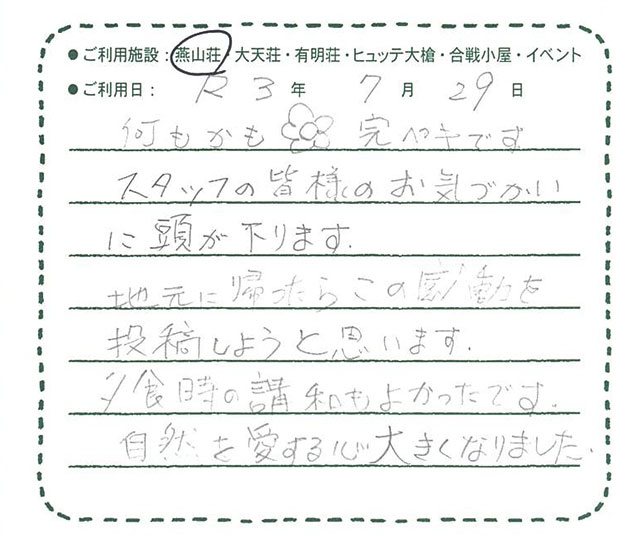 ●ご利用施設：燕山荘・大天荘・有明荘・ヒュッテ大槍・合戦小屋・イベント
●ご利用日： R3年 7月 29日
何もかも 完ペキです
スタッフの皆様のお気づかい
に頭が下ります.
地元に帰ったらこの感動を
投稿しようと思います.
夕食時の講和もよかったです.
自然を愛する心大きくなりました.